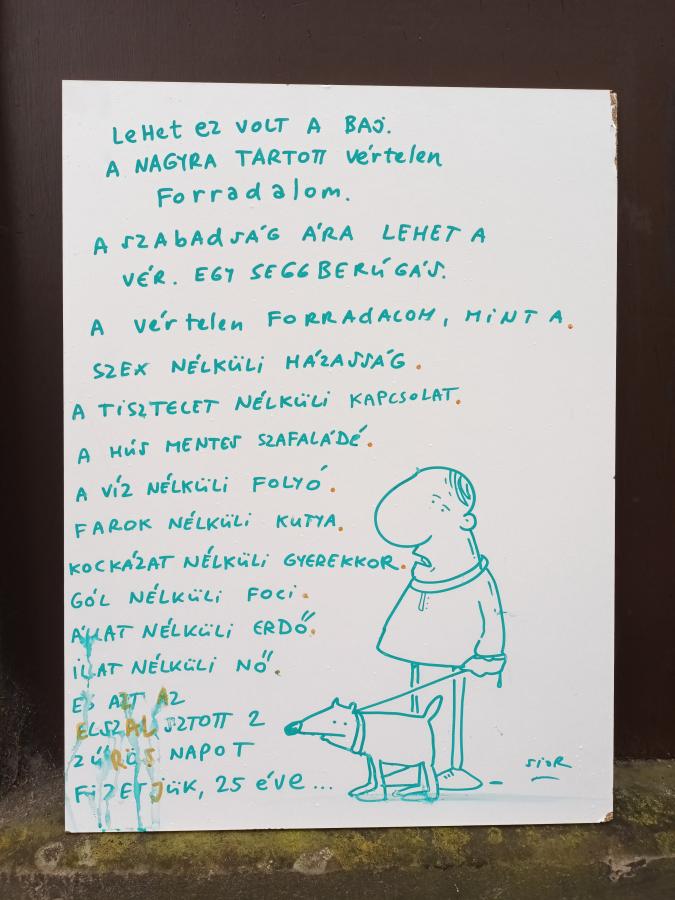 LeHet ez VOLT A BAJ.
A NAGYRA TARTOTT vértelen
Forradalom.
A SZAbAdSÁG ÁRA LEHET A
VÉR. EGY SEGGBERÚGÁS.
A vértelen FORRAdALOM, MINT A.
SZEX NÉLKÜLI HÁZASSÁG.
A TISZTELET NÉLKÜLI KAPCSOLAT.
A HÚS MENTES SZAFALÁDÉ.
A VÍZ NÉLKÜLI FOLYÓ.
FAROK NÉLKÜLI KUTYA.
KOCKÁZAT NÉLKÜLI GYEREKKOR.
GÓL NÉLKÜLI FOCI.
ÁLLAT NÉLKÜLI ERDŐ.
ILLAT NÉLKÜLI NŐ.
ÉS AZT AZ
ELSZALASZTOTT 2
ZŰRÖS NAPOT
FIZETJÜK, 25 éve...
SIOR